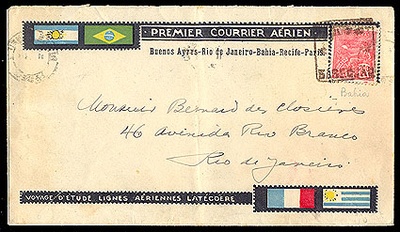 PREMIER COURRIER AÉRIEN
Buenos Ayres-Rio de Janeiro-Bahia-Recife-Paris
Bahia
Monsieur Bernard des Closières
46 avenida Rio Branco
Rio de Janeiro
VOYAGE D'ÉTUDE LIGNES AÉRIENNES LATÉCOÈRE